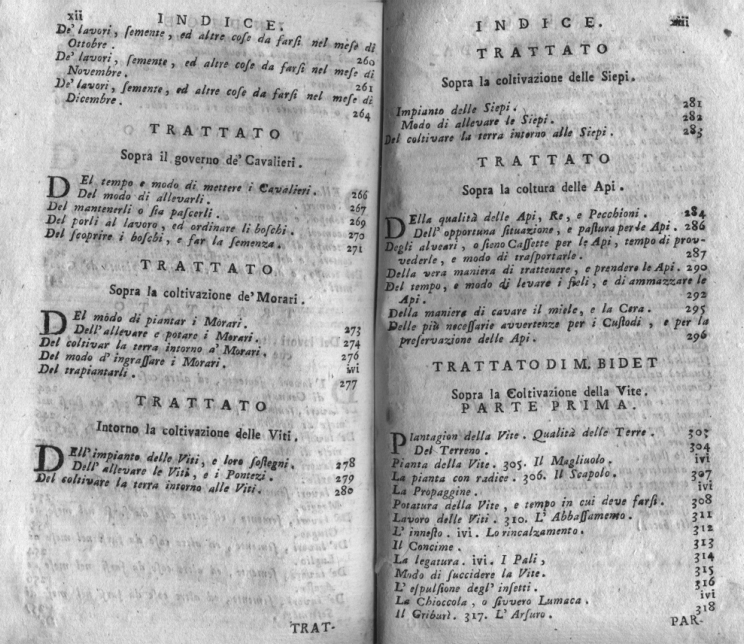 xii INDICE.
De' lavori, semente, ed altre cose da farsi nel mese di
Ottobre. 260
De' lavori, semente, ed altre cose da farsi nel mese di
Novembre. 261
De' lavori, semente, ed altre cose da farsi nel mese di
Dicembre. 264
TRATTATO
Sopra il governo de' Cavalieri.
DEl tempo e modo di mettere i Cavalieri. 266
Del modo di allevarli. 267
Del mantenerli o sia pascerli. 269
Del porli al lavoro, ed ordinare li boschi. 270
Del scoprire i boschi, e far la semenza. 271
TRATTATO
Sopra la coltivazione de' Morari.
DEl modo di piantar i Morari. 273
Dell'allevare e potare i Morari. 274
Del coltivar la terra intorno a' Morari. 276
Del modo d'ingrassare i Morari. ivi
Del trapiantarli. 277
TRATTATO
Intorno la coltivazione delle Viti.
DEll'impianto delle Viti, e loro sostegni. 278
Dell' allevare le Viti, e i Pontezi. 279
Del coltivare la terra intorno alle Viti. 280
TRAT-
INDICE. xiii
TRATTATO
Sopra la coltivazione delle Siepi.
Impianto delle Siepi. 281
Modo di allevare le Siepi. 282
Del coltivare la terra intorno alle Siepi. 283
TRATTATO
Sopra la coltura delle Api.
DElla qualità delle Api, Re, e Pecchioni. 284
Dell' opportuna situazione, e pastura per le Api. 286
Degli alveari, o sieno Cassette per le Api, tempo di prov-
vederle, e modo di trasportarle. 287
Della vera maniera di trattenere, e prendere le Api. 290
Del tempo, e modo di levare i fieli, e di ammazzare le
Api. 292
Della maniera di cavare il miele, e la Cera. 295
Delle più necessarie avvertenze per i Custodi, e per la
preservazione delle Api. 296
TRATTATO DI M. BIDET
Sopra la Coltivazione della Vite.
PARTE PRIMA.
PIantagion della Vite. Qualità delle Terre. 303
Del Terreno. 304
Pianta della Vite. 305. Il Magliuolo. ivi
La pianta con radice. 306. Il Scapolo. 307
La Propaggine. ivi
Potatura della Vite, e tempo in cui deve farsi. 308
Lavoro delle Viti. 310. L' Abbassamento. 311
L' innesto. ivi. Lo rincalzamento. 312
Il Concime. 313
La legatura. ivi. I Pali, 314
Modo di succidere la Vite. 315
L' espulsione degl' insetti. 316
La Chioccola, o sivvero Lumaca. ivi
Il Griburì. 317. L' Arsuro. 318
PAR-